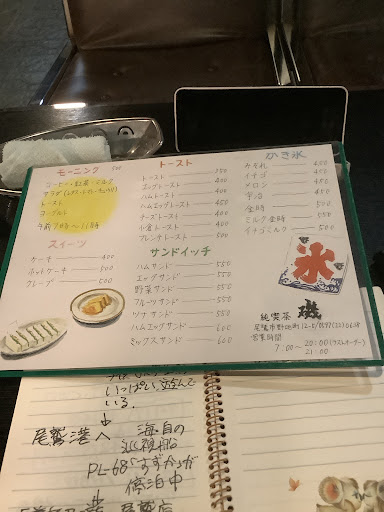 モーニング 500
コーヒー・紅茶・ミルク
トースト
ヨーグルト
午前7時〜11時
スイーツ
ケーキ 400
ホットケーキ 500
クレープ 500
トースト
トースト 350
エッグトースト 400
ハムトースト 400
ハムエッグトースト 450
チーズトースト 400
小倉トースト 400
フレンチトースト 500
サンドイッチ
ハムサンド 550
エッグサンド 550
野菜サンド 550
フルーツサンド 550
ツナサンド 550
ハムエッグサンド 600
ミックスサンド 600
かき氷
みぞれ 400
イチゴ 450
メロン 450
宇治
金時
ミルク金時
イチゴミルク
氷
純喫茶 磯
営業時間
7:00〜20:00(ラストオーダー)
21:00
いっぱい遊んで
いる。
尾鷲港へ 海自の
巡視船
PL-68「すずか」が
停泊中